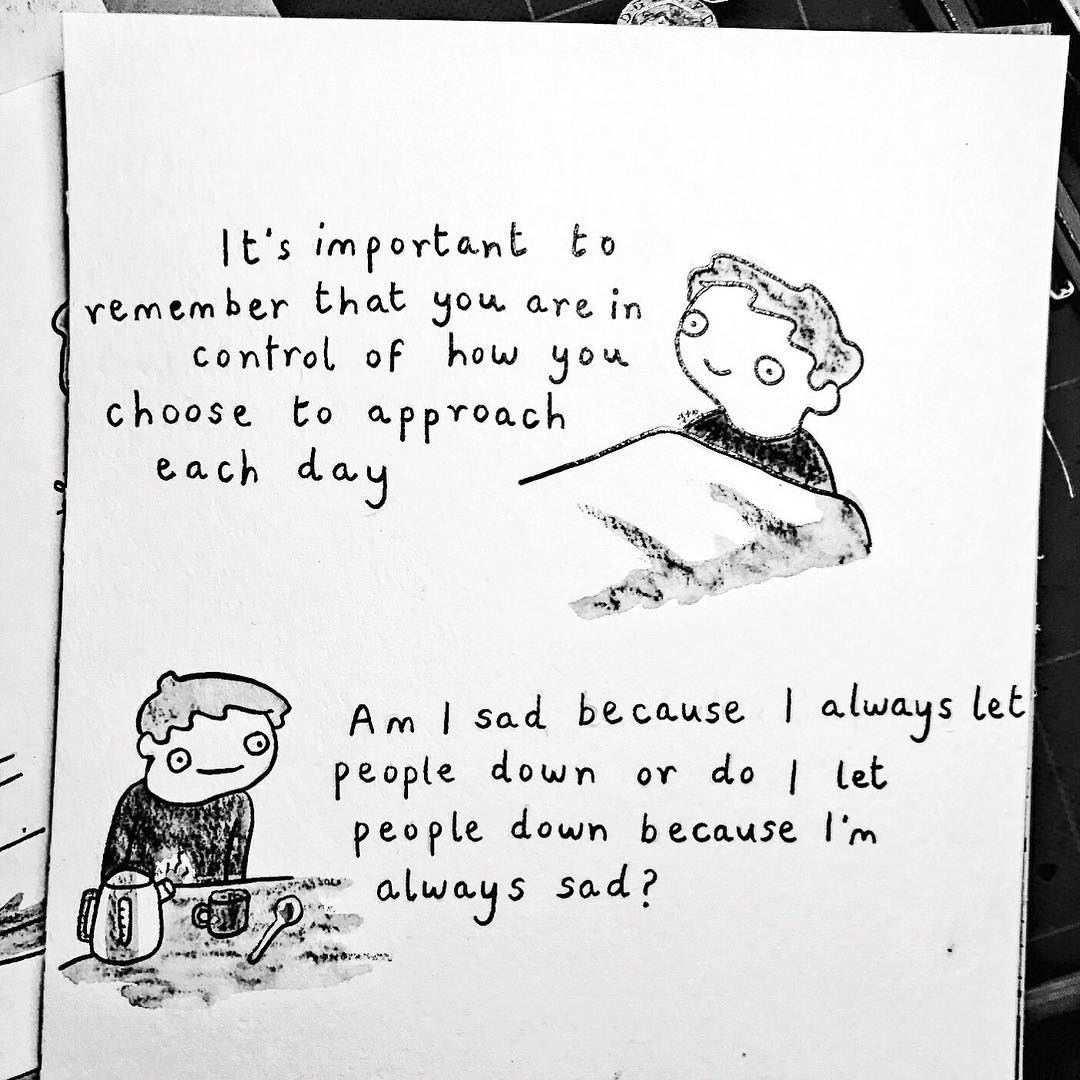 It's important to
remember that you are in
control of how you
choose to approach
each day
Am I sad because I always let
people down or do I let
people down because I'm
always sad?